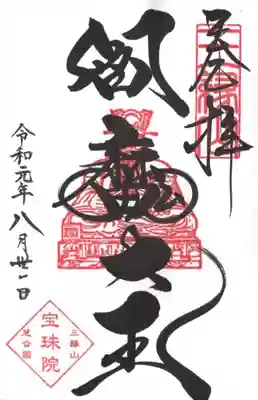 奉拝
閻魔大王
令和元年八月丗一日
三縁山
宝珠院
芝公園